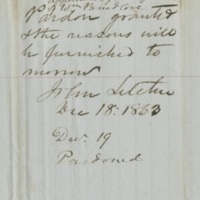 Pardon granted
& the reasons will
be furnished to
morrow
John Letcher
Dec 18. 1863
Dec. 19
Pardoned